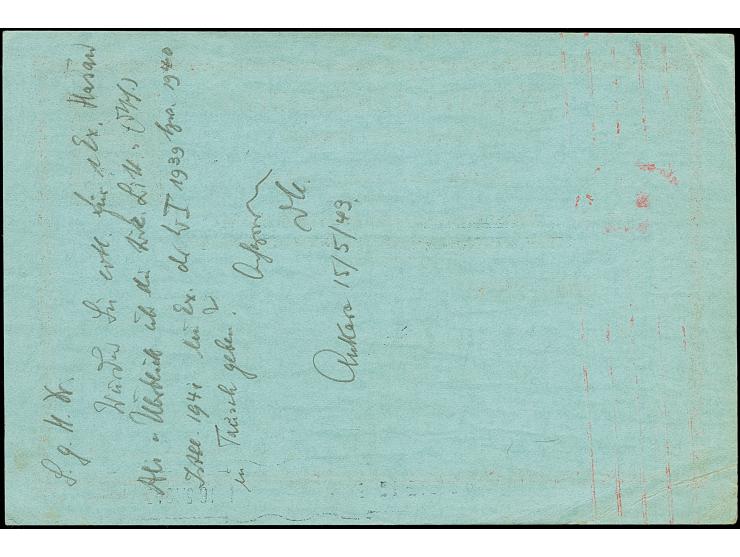 S. g. H. Dr.
Würden Sie evtl. für 1 Ex. Hasan
Ali " Überblick üb die türk. Litt. " (dtsch.)
Istb. 1941 ein Ex. der W I 1939 bzw. 1940
in Tausch geben?
Ankara 15/5/43.